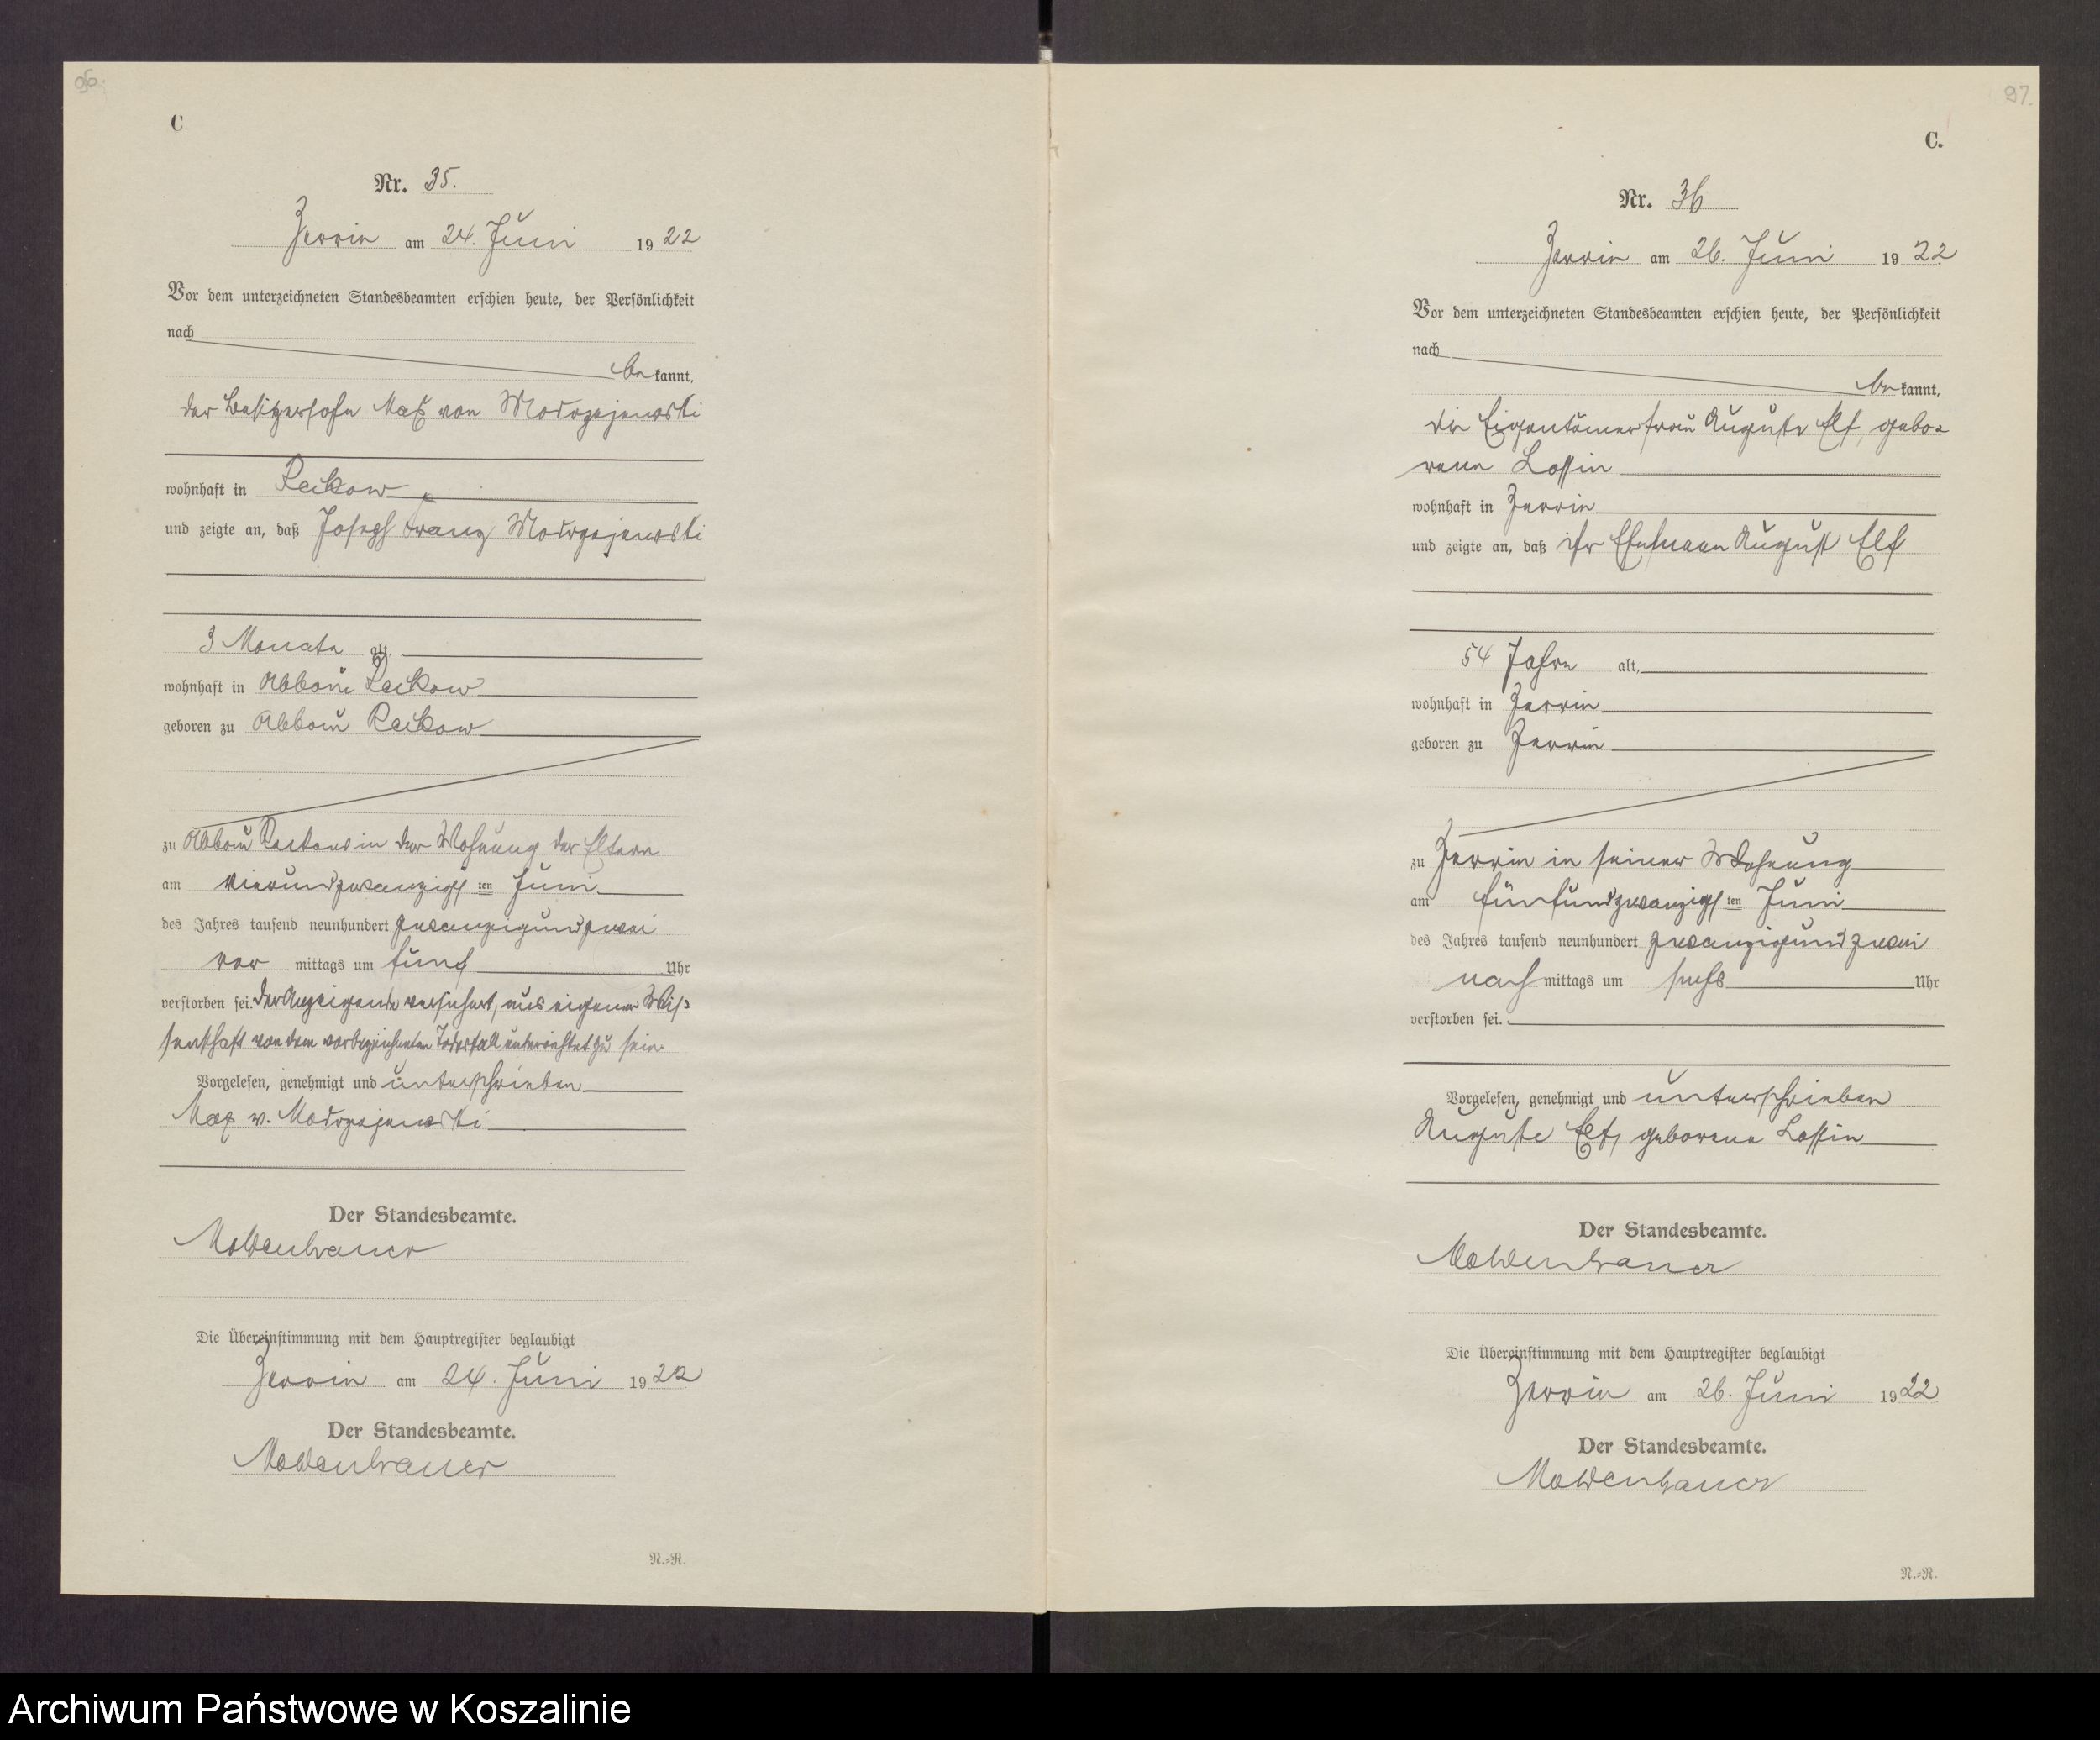 96.
C
Nr. 35.
Zerrin am 24. Juni 1922
Vor dem unterzeichneten Standesbeamten erschien heute, der Persönlichkeit
nach
bekannt,
der Besitzersohn Max von Modrzejewski
wohnhaft in Reckow
und zeigte an, daß Joseph Franz Modrzejewski
3 Monate alt,
wohnhaft in Abbau Reckow
geboren zu Abbau Reckow
zu Abbau Reckow in der Wohnung der Eltern
am vierundzwanzigsten Juni
des Jahres tausend neunhundert zwanzigundzwei
vor mittags um fünf Uhr
verstorben sei. Der Anzeigende versichert, aus eigener Wis-
senschaft von dem vorbezeichneten Todesfall unterrichtet zu sein.
Vorgelesen, genehmigt und unterschrieben
Max v. Modrzejewski
Der Standesbeamte.
Moldenhauer
Die Übereinstimmung mit dem Hauptregister beglaubigt
Zerrin am 24. Juni 1922
Der Standesbeamte.
Moldenhauer
N.-R.
97.
C.
Nr. 36
Zerrin am 26. Juni 1922
Vor dem unterzeichneten Standesbeamten erschien heute, der Persönlichkeit
nach
bekannt,
die Eigentümerfrau Auguste Elf, gebo-
rene Lossin
wohnhaft in Zerrin
und zeigte an, daß ihr Ehemann August Elf
54 Jahre alt,
wohnhaft in Zerrin
geboren zu Zerrin
zu Zerrin in seiner Wohnung
am fünfundzwanzigsten Juni
des Jahres tausend neunhundert zwanzigundzwei
nach mittags um sechs Uhr
verstorben sei.
Vorgelesen, genehmigt und unterschrieben
Auguste Elf, geborene Lossin
Der Standesbeamte.
Moldenhauer
Die Übereinstimmung mit dem Hauptregister beglaubigt
Zerrin am 26. Juni 1922
Der Standesbeamte.
Moldenhauer
N.-R.
Archiwum Państwowe w Koszalinie